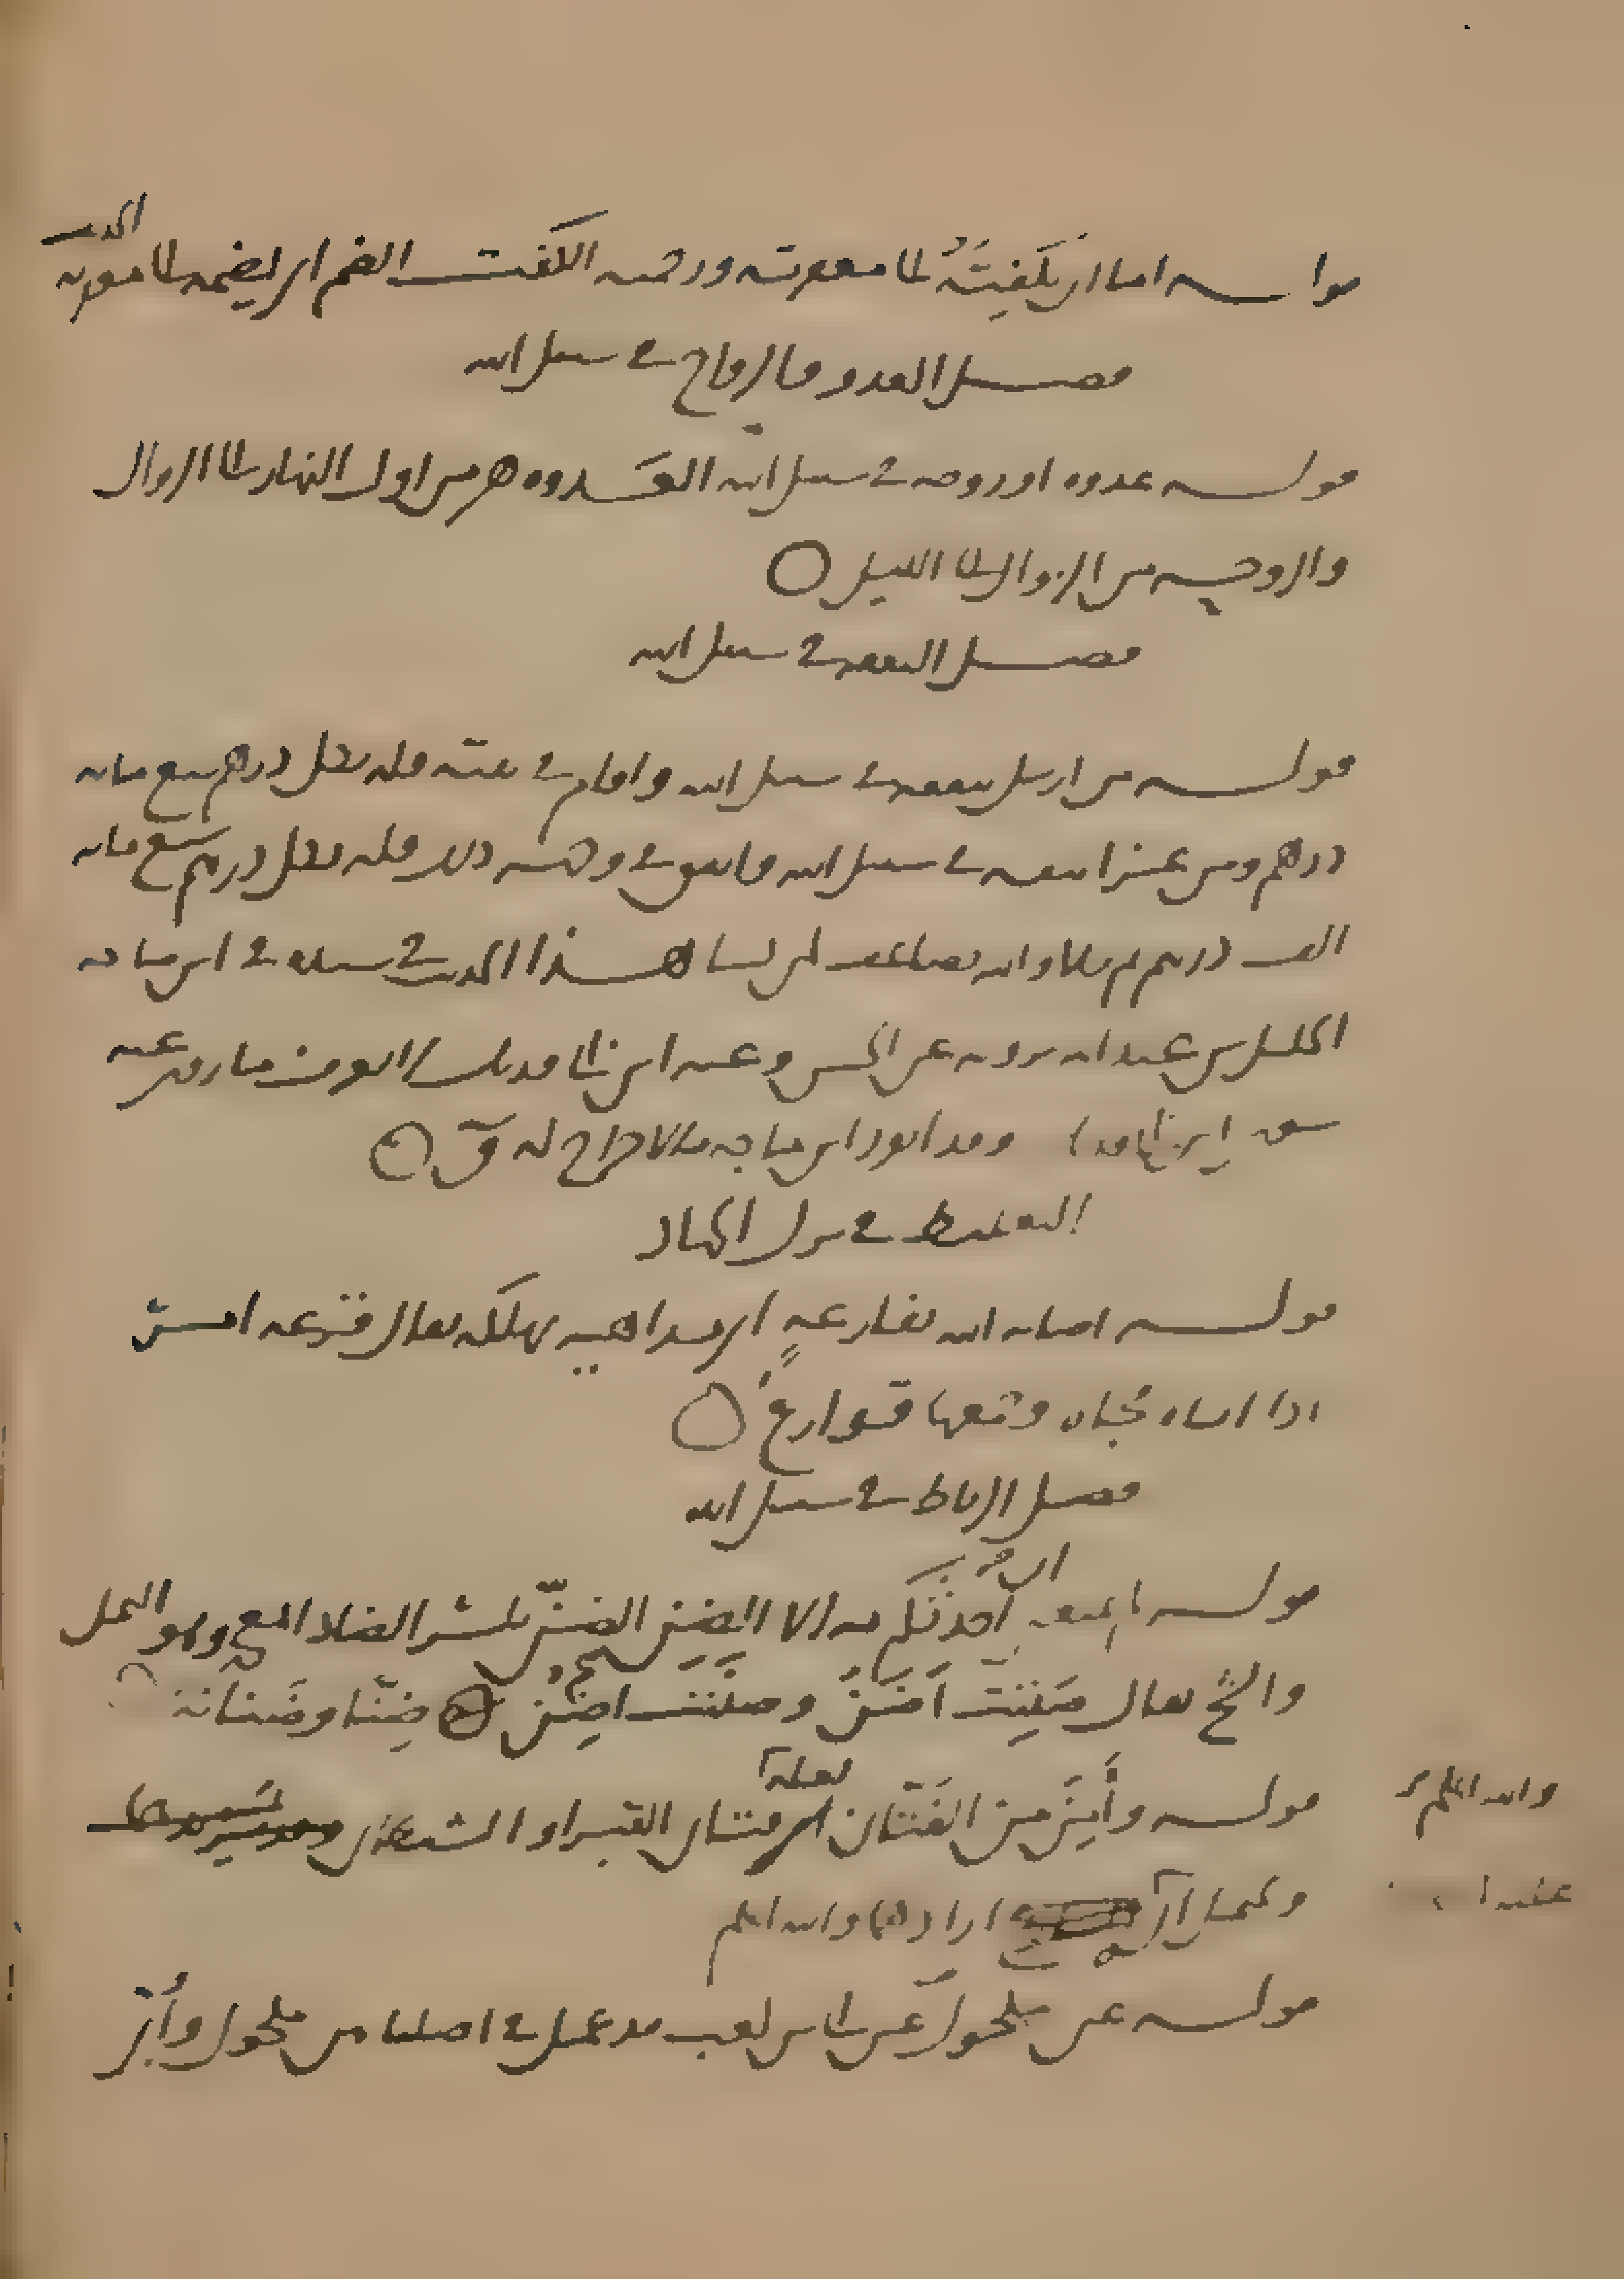 قوله اما ان يكفته الى مغفرته ورحمته الكفت الضم اي يضمه الى مغفرته
الحديث
فضل الغدو والرواح في سبيل الله
قوله غدوة او روحة في سبيل الله الغدوة هو من اول النهار الى الزوال
والروحة من الزوال الى الليل
فضل النفقة في سبيل الله
قوله من ارسل بنفقة في سبيل الله واقام في بيته فله بكل درهم سبع مائة
درهم ومن غزا بنفسه في سبيل الله وانفق في وجهه ذلك فله بكل درهم سبع مائة
الف درهم ثم تلا والله يضاعف لمن يشا هذا الحديث في سنده في ابن ماجه
الخليل بن عبد الله يرويه عن الحسن وعنه ابن ابي فديك لا يعرف ما روى عنه
سوى ابن ابي فديك وقد انفرد ابن ماجه بالاخراج له ق
التغليظ في ترك الجهاد
قوله اصابه الله بقارعة اي بداهية تهلكه يقال قرعه امر
اذا اتاه فجاه وجمعها قوارع
فضل الرباط في سبيل الله
قوله لم يمنعني ان احدثكم به الا الضن الضن بكسر الضاد المعجمه وهو البخل
والشح يقال ضننت اضن وضننت اضن ضنا وضنانة
قوله وأمن من الفتان لعله اي فتان القبر او الشيطان
والله اعلم
ويحتمل ان ارادهما والله اعلم
قوله عن مكحول عن ابي بن كعب قد عمل في اصلنا من مكحول وأبي